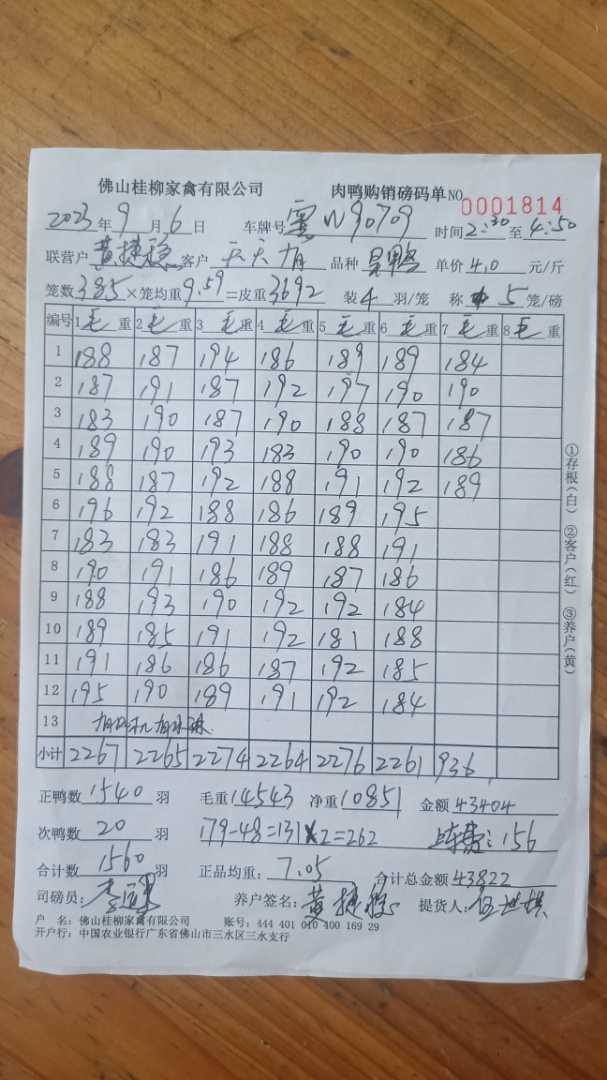 佛山桂柳家禽有限公司 肉鸭购销磅码单 NO 0001814
2023年9月6日 车牌号 W90709 时间2:30至4:50
联营户 黄捷稳 客户 天天旺 品种 鸭 单价4.0元/斤
笼数385×笼均重9.59=皮重3692 装4羽/笼 称5笼/磅
编号 1毛重 2毛重 3毛重 4毛重 5毛重 6毛重 7毛重 8毛重
1 188 187 194 186 189 189 184
2 187 191 187 192 197 190 190
3 183 190 187 190 188 187 187
4 189 190 193 183 190 190 186
5 188 187 192 188 191 192 189
6 196 192 188 186 189 195
7 183 183 191 188 188 191
8 190 191 186 189 187 186
9 188 193 190 192 192 184
10 189 185 191 192 181 188
11 191 186 186 187 192 185
12 195 190 189 191 192 184
13
小计 2267 2265 2274 2264 2276 2261 936
正鸭数1540羽 毛重14543 净重10851 金额43404
次鸭数20羽 179-48=131×2=262 156
合计数1560羽 正品均重:7.05 合计总金额43822
司磅员: 养户签名:黄捷稳 提货人:
户 名:佛山桂柳家禽有限公司 账号:444 401 010 400 169 29
开户行:中国农业银行广东省佛山市三水区三水支行
①存根(白) ②客户(红) ③养户(黄)